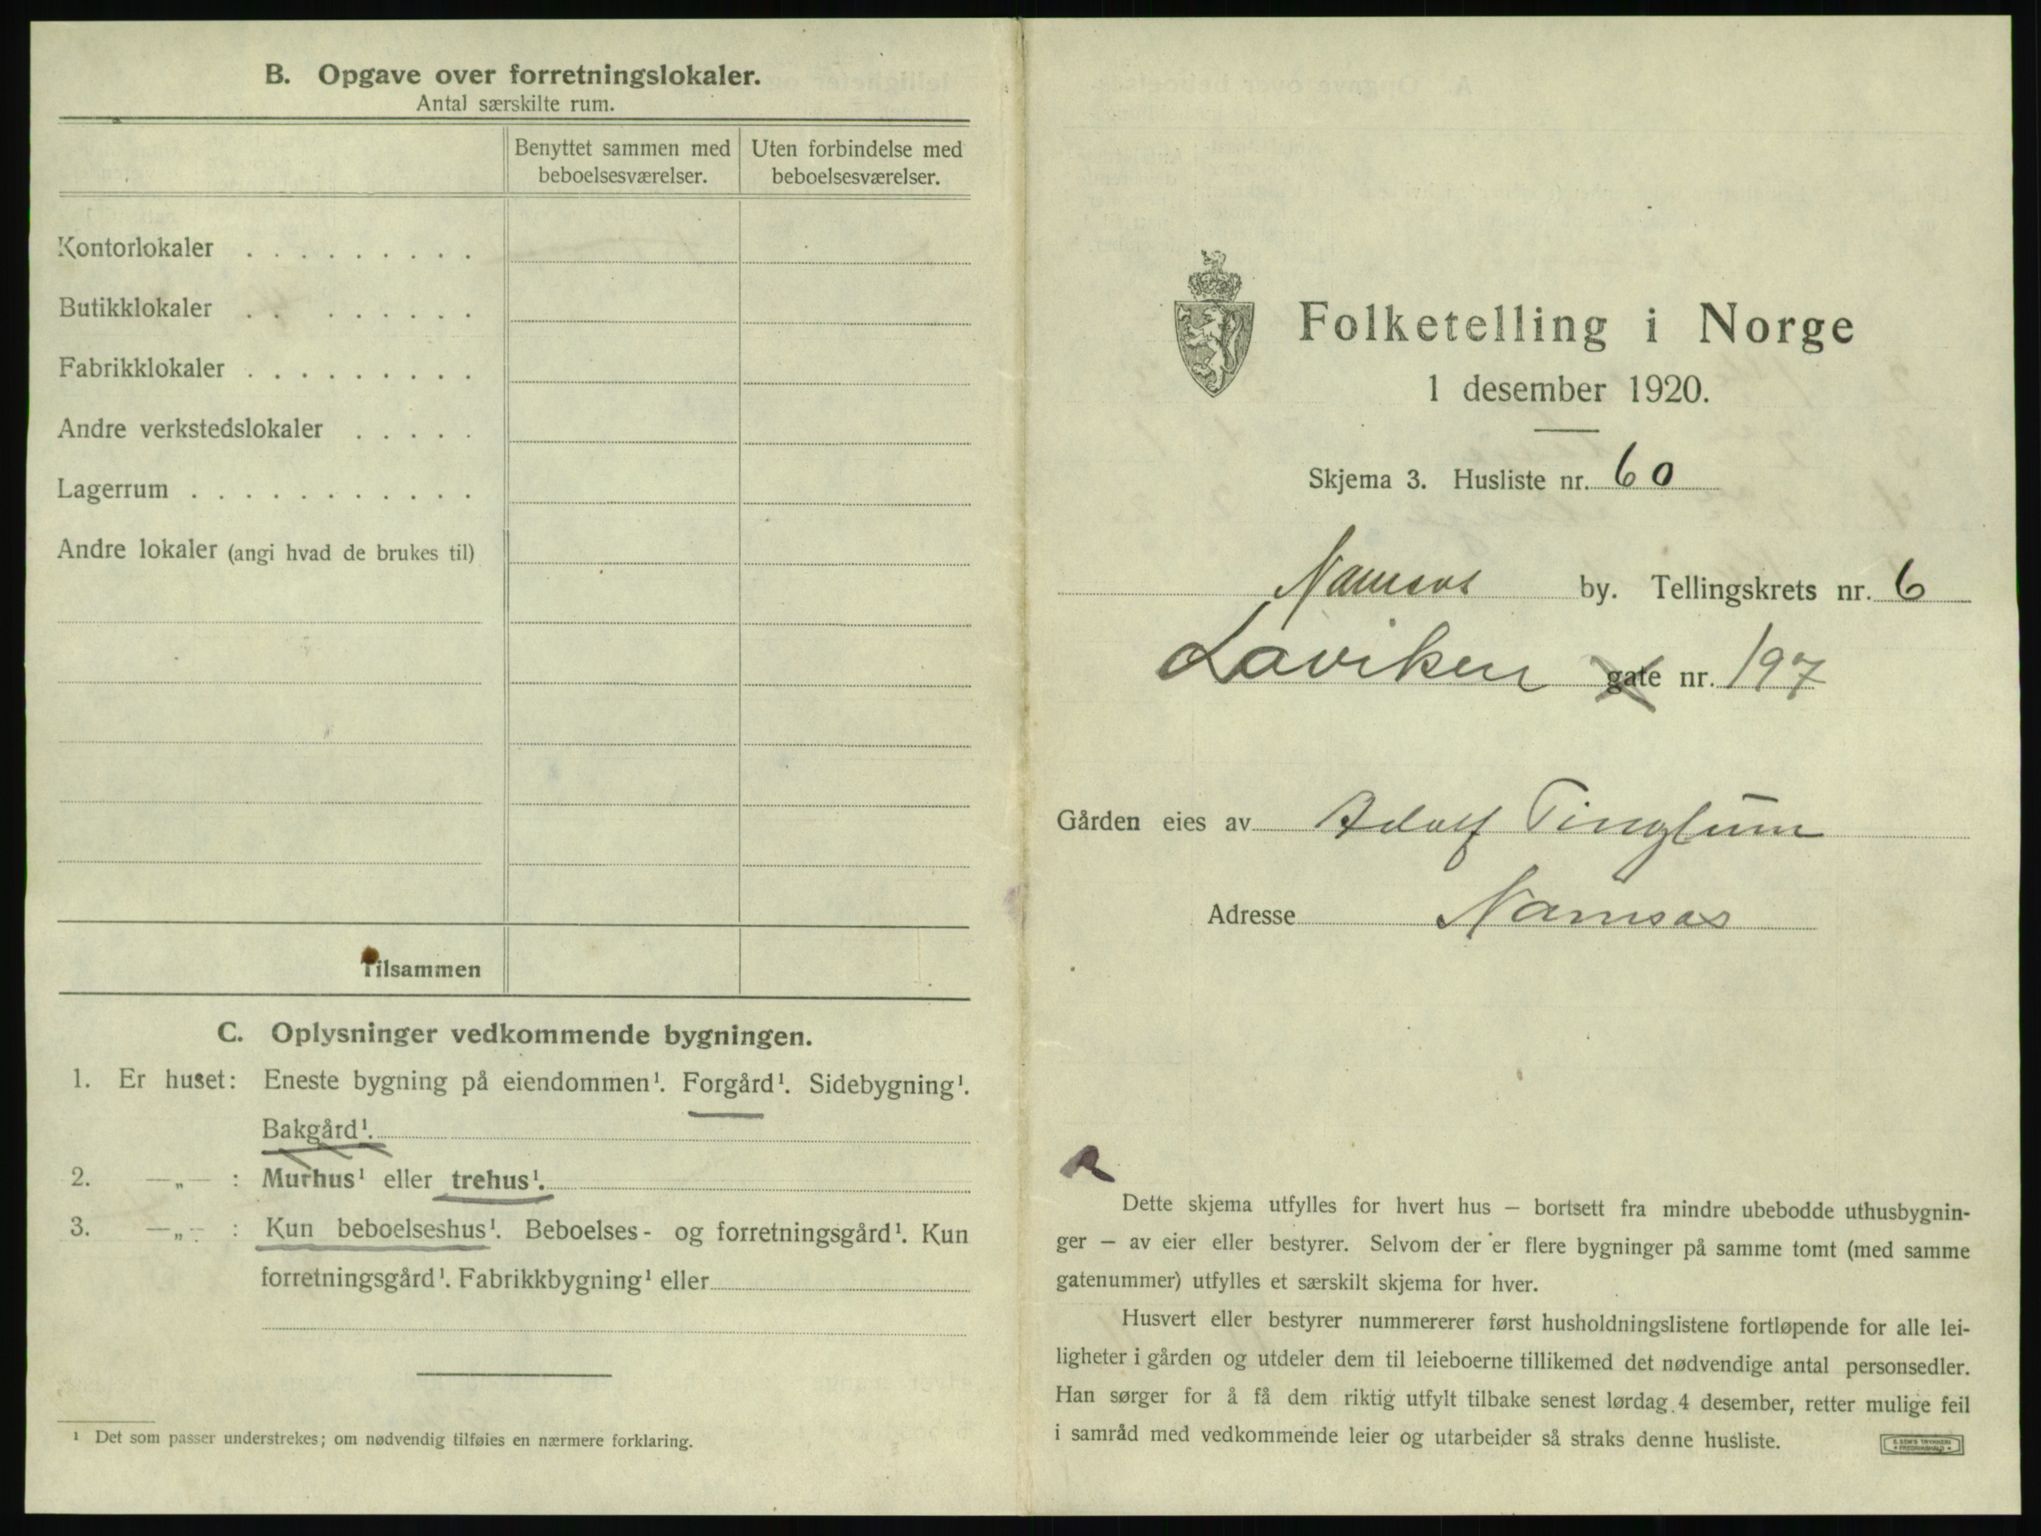 B. Opgave over forretningslokaler.
Antal særskilte rum.
Benyttet sammen med beboelsesværelser.
Uten forbindelse med beboelsesværelser.
Kontorlokaler . . . . . . . . .
Butikklokaler . . . . . . . .
Fabrikklokaler . . . . . . . . .
Andre verkstedslokaler . . . . .
Lagerrum . . . . . . . . . . .
Andre lokaler (angi hvad de brukes til)
Tilsammen
C. Oplysninger vedkommende bygningen.
1. Er huset: Eneste bygning på eiendommen¹. Forgård¹. Sidebygning¹.
Bakgård¹.
2. —„— : Murhus¹ eller trehus¹.
3. —„— : Kun beboelseshus¹. Beboelses- og forretningsgård¹. Kun
forretningsgård¹. Fabrikkbygning¹ eller
¹ Det som passer understrekes; om nødvendig tilføies en nærmere forklaring.
Folketelling i Norge
1 desember 1920.
Skjema 3. Husliste nr. 60
Namsos by. Tellingskrets nr. 6
Laviken gate nr. 197
Gården eies av Adolf Tinglum
Adresse Namsos
Dette skjema utfylles for hvert hus — bortsett fra mindre ubebodde uthusbygnin-
ger — av eier eller bestyrer. Selvom der er flere bygninger på samme tomt (med samme
gatenummer) utfylles et særskilt skjema for hver.
Husvert eller bestyrer nummererer først husholdningslistene fortløpende for alle lei-
ligheter i gården og utdeler dem til leieboerne tillikemed det nødvendige antal personsedler.
Han sørger for å få dem riktig utfylt tilbake senest lørdag 4 desember, retter mulige feil
i samråd med vedkommende leier og utarbeider så straks denne husliste.